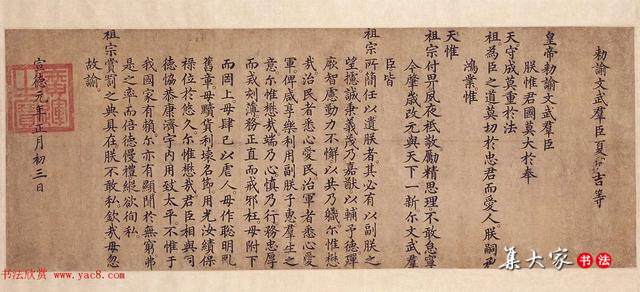 勑諭文武羣臣夏原吉等
皇帝勑諭文武羣臣
朕惟君國莫大於奉
天守成莫重於法
祖為臣之道莫切於忠君而愛人朕嗣承
鴻業惟
天惟
祖宗付畀夙夜祗敬勵精思理不敢怠寧
今肇歲改元與天下一新尔文武羣
臣皆
祖宗所簡任以遺朕者其必有以副朕之
望攄誠秉義茂乃嘉猷以輔予德殫
厥智慮勤力不懈以共乃職尔惟懋
哉治民者悉心愛民治軍者悉心愛
軍俾咸享樂利用副朕子惠羣生之
意尔惟懋哉端乃心慎乃行務忠厚
而戒刻薄務正直而戒邪枉毋附下
而罔上毋肆己以虐人毋作聰明亂
舊章毋黷貨利壞名節用光汝績保
祿位於悠久尔惟懋哉君臣相與同
德恊恭康濟宇內用致太平不惟于
我國家有賴尔亦有顯聞於無窮弗
是之率而倍德慢禮縱欲徇私
祖宗賞罰之典具在朕不敢私欽哉毋忽
故諭
宣德元年正月初三日
书法欣赏
www.yac8.com
集大家书法